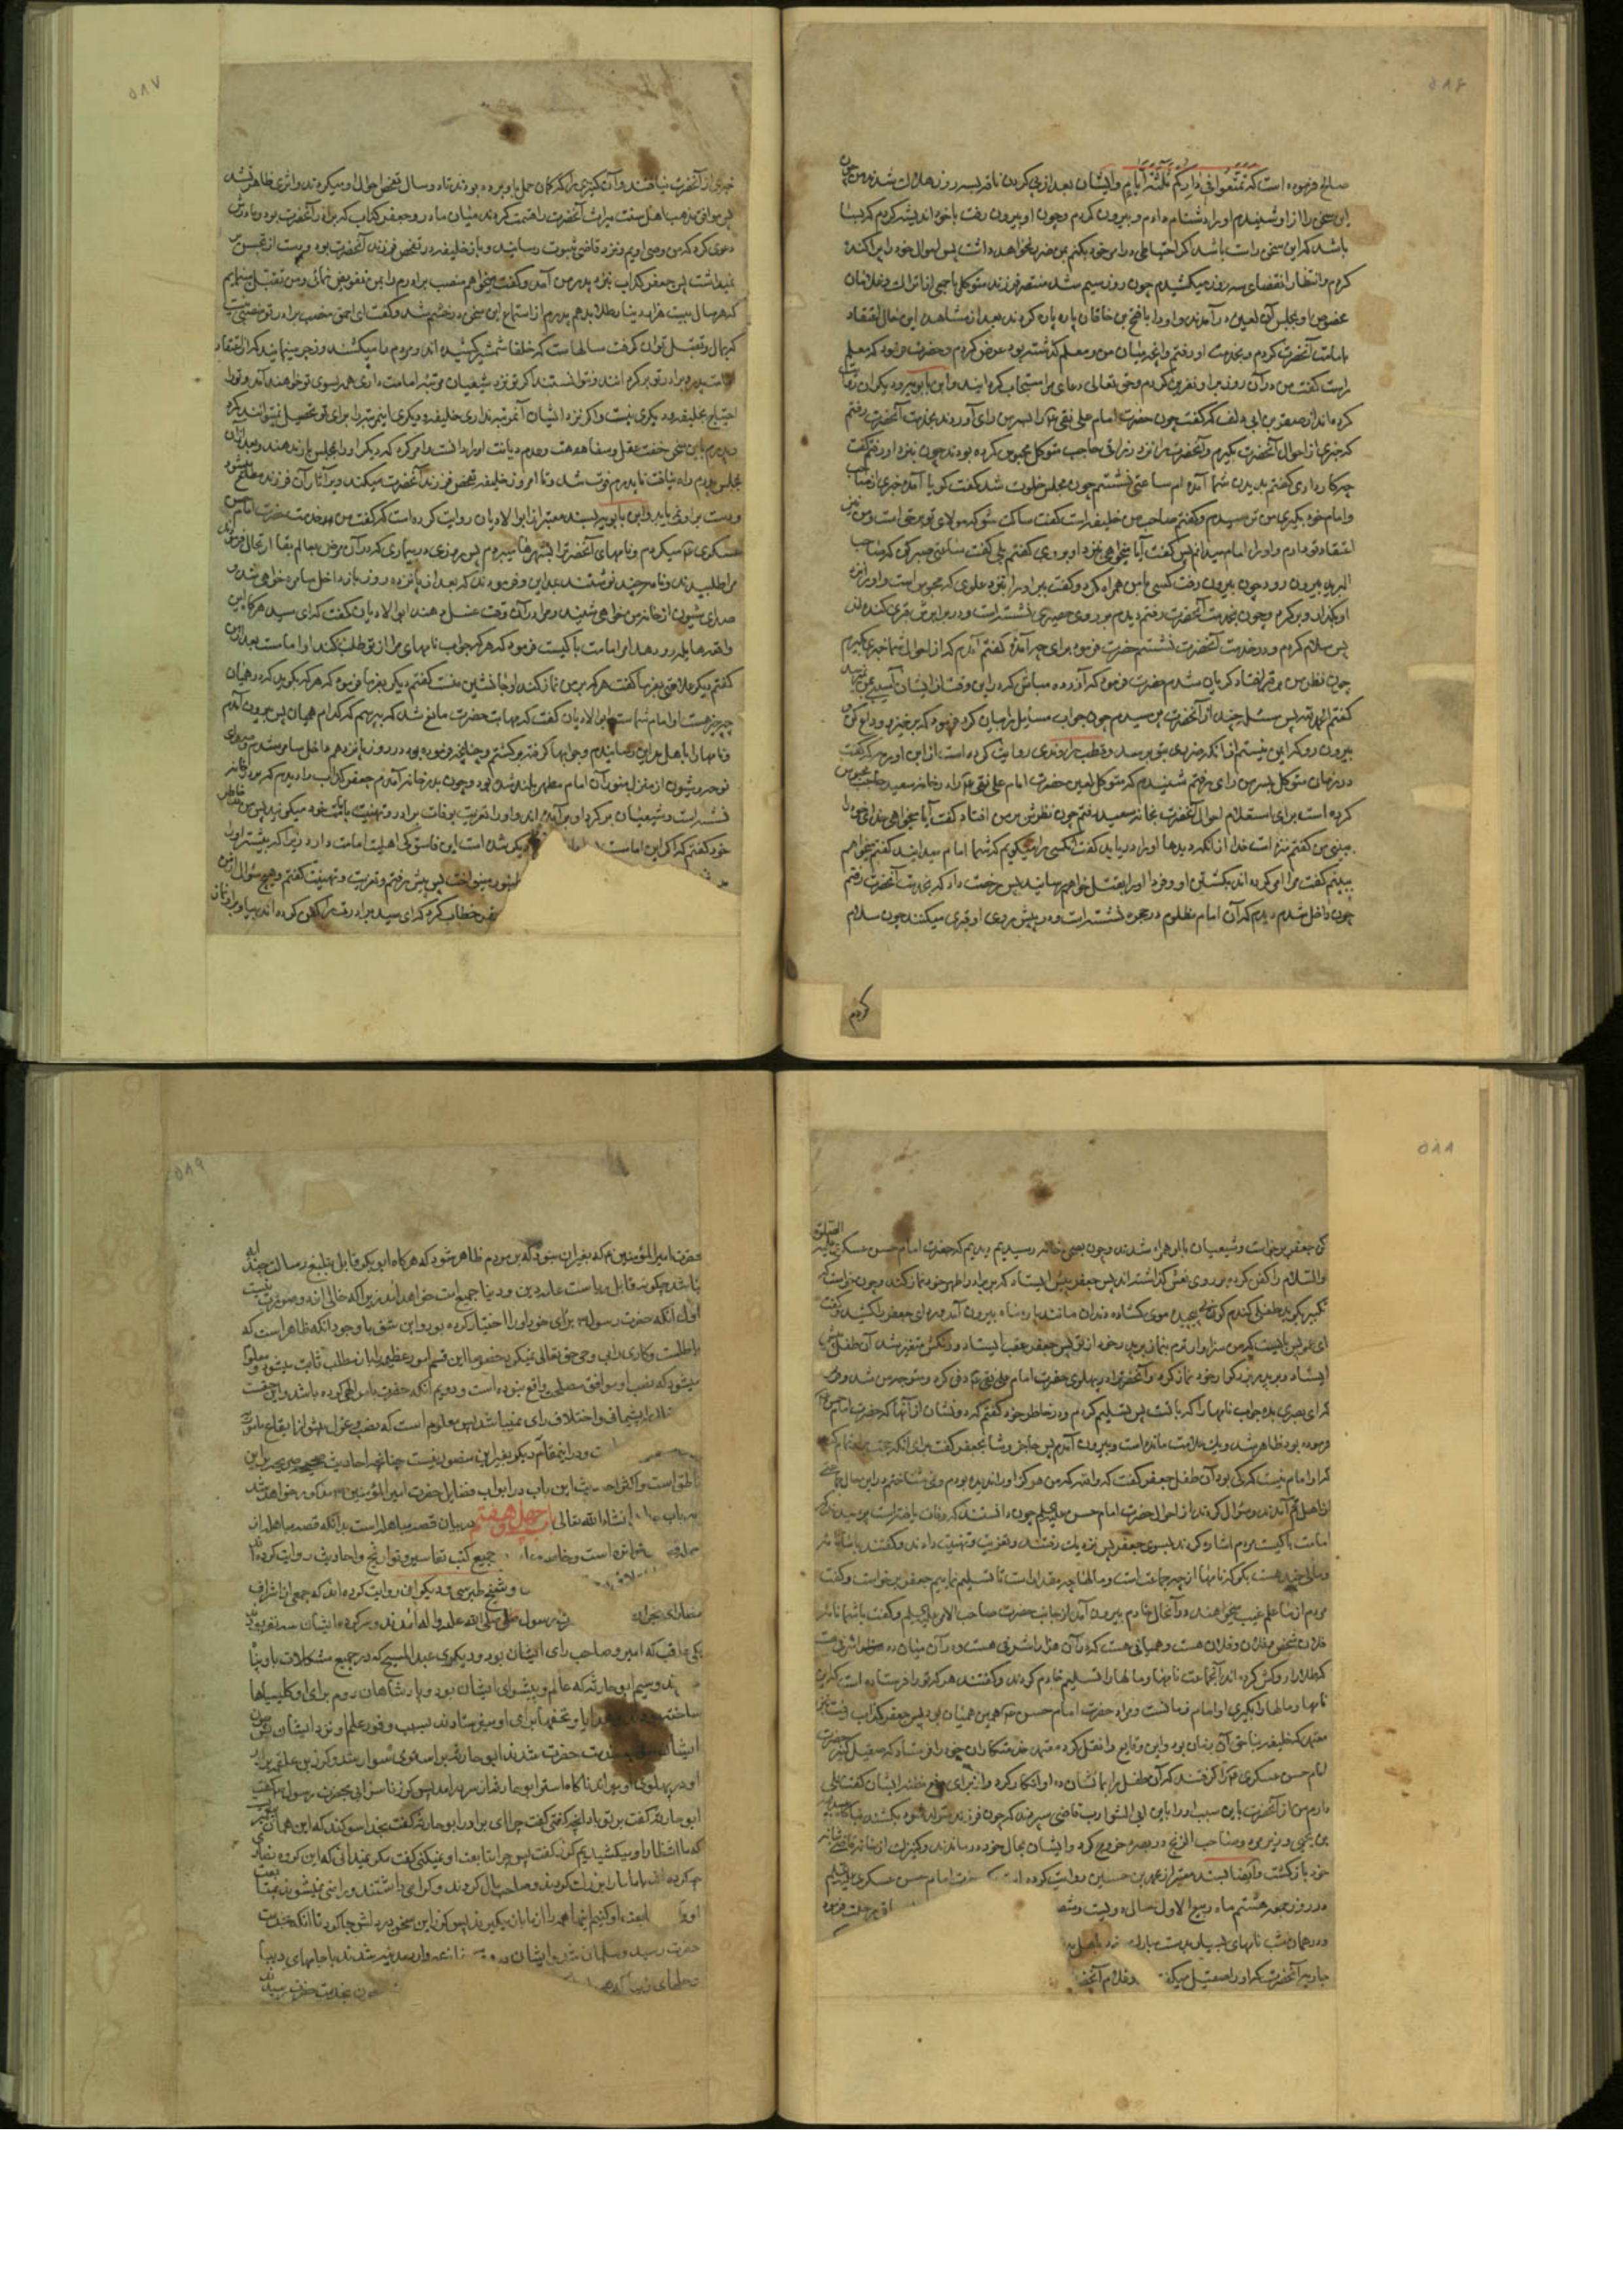 ۵۸۶
صالح فرموده است که تمتعوا فی دارکم ثلثة ایام وایشان بعد از پی کردن ناقه بسه روز هلاک شدند من چون
این سخن را از او شنیدم او را دشنام دادم و بیرون کردم و چون او بیرون رفت با خود اندیشه کردم که بسا
باشد که این سخن راست باشد اکر احتیاطی در امر خود بکنم بمن ضرر نخواهد داشت پس اموال خود را پراکنده
کردم و انتظار انقضای سه روز میکشیدم چون روز سیم شد منتصر فرزند متوکل با جمعی از اتراک و غلامان
مخصوص او بمجلس آن لعین در آمدند و او را با فتح بن خاقان پاره پاره کردند بعد از مشاهده این حال اعتقاد
بامامت آنحضرت کردم و بخدمت او رفتم و آنچه میان من و معلم کذشته بود عرض کردم و حضرت فرمود که معلم
راست کفت من در آن روز بر او نفرین کردم و حق تعالی دعای مرا مستجاب کردانید و ابن بابویه و دیکران روایت
کرده‌اند از صقر بن ابی دلف که کفت چون حضرت امام علی نقی را بسر من رای آوردند بخدمت آنحضرت رفتم
که خبری از احوال آنحضرت بکیرم و آنحضرت را نزد زراقی حاجب متوکل محبوس کرده بودند چون بنزد او رفتم کفت
بچه کار آمده
کفتم بدیدن شما آمده ام ساعتی نشستم چون مجلس خلوت شد کفت کویا آمده خبری از صاحب
و امام خود بکیری من ترسیدم و کفتم صاحب من خلیفه است کفت ساکت شو که مولای تو بر حق است و من نیز
اعتقاد تو دارم و او را امام میدانم پس کفت آیا میخواهی نزد او بروی کفتم بلی کفت ساعتی صبر کن که صاحب
البرید بیرون رود چون بیرون رفت کسی با من همراه کرد و کفت ببر او را نزد علوی که محبوس است و او را نزد
او بکذار و برکرد و چون بخدمت آنحضرت رفتم دیدم بر روی حصیری نشسته است و در برابرش قبری کنده اند
پس سلام کردم و در خدمت آنحضرت نشستم حضرت فرمود برای چه آمدۀ کفتم آمدم که از احوال شما خبری بکیرم
چون نظر من بر قبر افتاد کریان شدم حضرت فرمود که آزرده مباش که در این وقت از ایشان آسیبی بمن نمیرسد
کفتم الحمد لله پس مسئلۀ چند از آنحضرت پرسیدم چون جواب مسایل را بیان کرد فرمود که برخیز و وداع کن و
بیرون رو که ایمن نیستم از آنکه ضرری بتو برسد و قطب راوندی روایت کرده است از ابن اورمه که کفت
در زمان متوکل بسر من رای رفتم شنیدم که متوکل لعین حضرت امام علی نقی را در خانه سعید حاجب محبوس
کرده است برای استعلام احوال آنحضرت بخانه سعید رفتم چون نظرش بر من افتاد کفت آیا میخواهی خدای خود را
ببینی من کفتم منزه است خدا از آنکه دیدها او را دریابد کفت آنکسی را میکویم که شما امام میدانید کفتم میخواهم
ببینم کفت مرا امر کرده اند بکشتن او و فردا او را بقتل خواهم رسانید پس رخصت داد که بخدمت آنحضرت رفتم
چون داخل شدم دیدم که آن امام مظلوم در حجره نشسته است و در پیش روی او قبری میکنند چون سلام
کردم
۵۸۷
خبری از آنحضرت نیافتند و آن کنیزی را که کمان حمل باو برده بودند تا دو سال تفحص احوال او میکردند و اثری ظاهر نشد
پس موافق مذهب اهل سنت میراث آنحضرت را قسمت کردند میان مادر و جعفر کذاب که برادر آنحضرت بود و مادرش
دعوی کرد که من وصی اویم و نزد قاضی بثبوت رسانید و باز خلیفه در تفحص فرزند آنحضرت بود و دست از تجسس
نمیداشت پس جعفر کذاب بنزد پدر من آمد و کفت میخواهم منصب برادرم را بمن تفویض نمائی و من تقبل مینمایم
که هر سال بیست هزار دینار طلا بدهم پدرم از استماع این سخن در خشم شد و کفت ای احمق منصب برادر تو منصبی نیست
که بمال و تقبل توان کرفت سالهاست که خلفا شمشیر کشیده اند و مردم را میکشند و زجر مینمایند که از اعتقاد
امامت پدر و برادر تو برکردند و نتوانستند اکر تو نزد شیعیان مرتبۀ امامت داری همه بسوی تو خواهند آمد و ترا
احتیاج بخلیفه و دیکری نیست و اکر نزد ایشان آنمرتبه نداری خلیفه و دیکری این مرتبه را برای تو تحصیل نمیتوانند کرد
و پدرم باین سخن خفت عقل و سفاهت و عدم دیانت او را دانست امر کرد که دیکر او را بمجلس راه ندهند و بعد از آن
بمجلس پدرم راه نیافت تا پدرم فوت شد و تا امروز خلیفه تفحص فرزند آنحضرت میکند و بر آثار آن فرزند مطلع نمیشود
و دست بر او نمی یابد و ابن بابویه بسند معتبر از ابو الادیان روایت کرده است که کفت من خدمت حضرت امام حسن
عسکری میکردم و نامهای آنحضرت را بشهرها میبردم پس روزی در بیماری که در آن مرض بعالم بقا ارتحال فرمودند
مرا طلبیدند و نامۀ چند نوشتند بمداین و فرمودند که بعد از پانزده روز باز داخل سامره خواهی شد و
صدای شیون از خانۀ من خواهی شنید و مرا در آن وقت غسل دهند ابو الادیان کفت که ای سید هرکاه این
واقعه هایله رو دهد امر امامت با کیست فرمود که هر که جواب نامهای مرا از تو طلب کند او امامست بعد از من
کفتم دیکر علامتی بفرما کفت هر که بر من نماز کند او جانشین منست کفتم دیکر بفرما فرمود که هر که بکوید که در همیان
چه چیز هست او امام شماست ابو الادیان کفت که مهابت حضرت مانع شد که بپرسم که کدام همیان پس بیرون آمدم
و نامها را باهل مداین رسانیدم و جوابها کرفته برکشتم و چنانچه فرموده بود در روز پانزدهم داخل سامره شدم و صدای
نوحه و شیون از منزل منور آن امام مطهر بلند شده بود و چون بدر خانه آمدم جعفر کذاب را دیدم که بر در خانه
نشسته است و شیعیان بر کرد او بر آمده اند و او را تعزیت بوفات برادر و تهنیت بامامت خود میکویند پس من در خاطر
خود کفتم که اکر این امامست
دیکر شده است این فاسق کی اهلیت امامت دارد زیرا که پیشتر او را
طنبور مینواخت پس پیش رفتم و تعزیت و تهنیت کفتم و هیچ سؤال از من
خطاب کرد که ای سید برادرت را کفن کرده اند بیا و بر او نماز
۵۸۸
کن جعفر برخاست و شیعیان با او همراه شدند و چون بصحن خانه رسیدیم دیدیم که حضرت امام حسن عسکری علیه الصلوة
والسلام را کفن کرده بر روی نعش کذاشته اند پس جعفر پیش ایستاد که بر برادر اطهر خود نماز کند و چون خواست که
تکبیر بکوید طفلی کندم کون پیچیده موی کشاده دندان مانند پاره ماه بیرون آمد و ردای جعفر را کشید و کفت
ای عم پس بایست که من سزاوار ترم بنماز بر پدر خود از تو پس جعفر عقب ایستاد و رنکش متغیر شد آن طفل پیش
ایستاد و بر پدر بزرکوار خود نماز کرد و آنحضرت را در پهلوی حضرت امام علی نقی دفن کرد و متوجه من شد و فرمود
که ای بصری بده جواب نامها را که با تست پس تسلیم کردم و در خاطر خود کفتم که دو نشان از آنها که حضرت امام حسن
فرموده بود ظاهر شد و یک علامت مانده است و بیرون آمدم پس حاجز وشا بجعفر کفت برای آنکه حجت بر او تمام کند
که او امام نیست که کی بود آن طفل جعفر کفت که والله که من هرکز او را ندیده بودم و نمی شناختم در این حال جماعتی
از اهل قم آمدند و سؤال کردند از احوال حضرت امام حسن علیه السلام چون دانستند که وفات یافته است پرسیدند که
امامت با کیست مردم اشاره کردند بسوی جعفر پس نزدیک رفتند و تعزیت و تهنیت دادند و کفتند با ما نامه
و مالی چند هست بکو که نامها از چه جماعت است و مالها چه مقدار است تا تسلیم نمائیم جعفر برخواست و کفت
مردم از ما علم غیب میخواهند در آنحال خادم بیرون آمد از جانب حضرت صاحب الامر علیه السلام و کفت با شما نامۀ
فلان شخص و فلان و فلان هست و همیانی هست که در آن هزار اشرفی هست و در آن میان ده اشرفی هست
که طلا را روکش کرده اند آنجماعت نامها و مالها را تسلیم خادم کردند و کفتند هر که تو را فرستاده است که این
نامها و مالها را بکیری او امام زمانست و مراد حضرت امام حسن همین همیان بود پس جعفر کذاب رفت بنزد
معتمد که خلیفه بناحق آن زمان بود و این وقایع را نقل کرد معتمد خدمتکاران خود را فرستاد که صقیل کنیز حضرت
امام حسن عسکری را کرفتند که آن طفل را بما نشان ده او انکار کرد و از برای رفع مظنه ایشان کفت حملی
دارم من از آنحضرت باین سبب او را بابن ابی الشوارب قاضی سپردند که چون فرزند متولد شود بکشند ناکاه عبد الله
بن یحیی وزیر مرد و صاحب الزنج در بصره خروج کرد و ایشان بحال خود درماندند و کنیزک از خانه قاضی بخانه
خود باز کشت و ایضا بسند معتبر از محمد بن حسین روایت کرده
حضرت امام حسن عسکری علیه السلام
در روز جمعه هشتم ماه ربیع الاول سال دویست و شصت
و در همان شب نامهای بسیار بدست مبارک
جاریه آنحضرت که او را صقیل میکفتند
و غلام آنحضرت
۵۸۹
حضرت امیر المؤمنین که بغیر از این نبود که بر مردم ظاهر شود که هرکاه ابو بکر قابل تبلیغ رسالت چند آیه
باشد چکونه قابل ریاست عامه دین و دنیا جمیع امت خواهد بود زیرا که خالی از دو صورت نیست
اول آنکه حضرت رسول برای خود او را اختیار کرده بود و این شق با وجود آنکه ظاهر است که
باطلست و کاری را بی وحی حق تعالی نمیکرد خصوصا این قسم امور عظیم را باز مطلب ثابت میشود و معلوم
میشود که نصب او موافق مصلحتی واقع نبوده است و دویم آنکه حضرت بامر الهی کرده باشد و این حقیقت
پشیمانی و اختلاف رای نمیباشد پس معلوم است که نصب و عزل پیش از ایقاع مامور به
و در اینمقام دیکر بغیر این متصور نیست چنانچه احادیث صحیحه صریحه بر این
ناطق است و اکثر احادیث این باب در ابواب فضایل حضرت امیر المؤمنین مذکور خواهد شد
انشاء الله تعالی باب چهل و هفتم در بیان قصه مباهله است بدانکه قصه مباهله از
جمله قصه
متواتره است و خاصه
جمیع کتب تفاسیر و تواریخ و احادیث روایت کرده اند
و شیخ طبرسی و دیکران روایت کرده اند که جمعی از اشراف
نصارای نجران
رسول صلی الله علیه و اله آمدند و سرکرده ایشان سه نفر بودند
یکی عاقب که امیر و صاحب رای ایشان بود و دیکری عبد المسیح که در جمیع مشکلات باو پناه
و سیم ابو حارثه که عالم و پیشوای ایشان بود و پادشاهان روم برای او کلیسیاها
ساخته بودند و هدایا و تحفها برای او میفرستادند بسبب وفور علم او نزد ایشان پس چون
ایشان متوجه خدمت حضرت شدند ابو حارثه بر استری سوار شد و کرز بن علقمه برادر
او در پهلوی او میراند ناکاه استر ابو حارثه بسر در آمد پس کرز ناسزائی بحضرت رسول کفت
ابو حارثه کفت بر تو باد آنچه کفتی کفت چرا ای برادر ابو حارثه کفت بخدا سوکند که این همان پیغمبریست
که ما انتظار او میکشیدیم کرز کفت پس چرا متابعت او نمیکنی کفت مکر نمیدانی که این کروه نصاری
چه کرده اند با ما ما را بزرک کردند و صاحب مال کردند و کرامی داشتند و راضی نمیشوند بمتابعت
او و اکر متابعت او کنیم اینها همه را از ما باز میکیرند پس کرز این سخن در دلش جا کرد تا آنکه بخدمت
حضرت رسید و مسلمان شد و ایشان
وارد مدینه شدند با جامهای دیبا
و حلهای زیبا که
چون بخدمت حضرت رسیدند